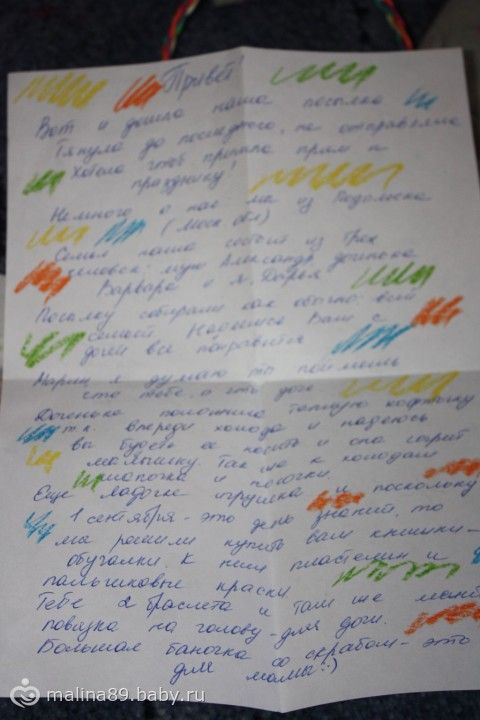 Привет!
Вот и дошла наша посылка
Тянула до последнего, но отправила
Хотела чтоб пришла прям к
празднику!
Немного о нас мы из Подольска
(Моск обл)
Семья наша состоит из трех
человек: муж Александр, доченька
Варвара и я, Дарья
Посылку собирали как обычно всей
семьей Надеемся Вам с
дочей все понравится
Марин я думаю ты поймешь
что тебе, а что доче
Доченьке положила теплую кофточку
т.к. впереди холода и надеюсь
вы будете ее носить и она согреет
малышку. Так же к холодам
шапочка и носочки.
Еще ладочке игрушка и поскольку
1 сентября - это день знаний, то
мы решили купить вам книжки-
обучалки. К ним пластелин и
пальчиковые краски
Тебе 2 браслета и там же
повязка на голову - для дочи.
Большая баночка со скрабом - это
для мамы :)
malina89.baby.ru